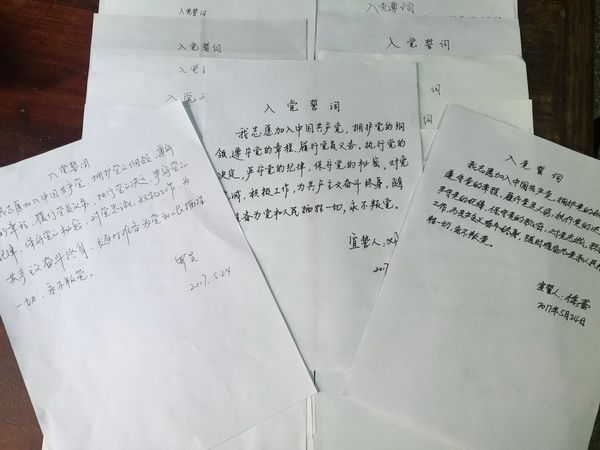 入党誓词
入党誓词
入党誓词
入党誓词
入党
入党
词
词
入党誓词
我志愿加入中国共产党，拥护党的纲领，遵守
的章程，履行党员义务，执行党的决定，严守党的
纪律，保守党的秘密，对党忠诚，积极工作，为
共产主义奋斗终身，随时准备为党和人民牺牲
一切，永不叛党。
2017.5.24
入党誓词
我志愿加入中国共产党，拥护党的纲
领，遵守党的章程，履行党员义务，执行党的
决定，严守党的纪律，保守党的秘密，对党
诚，积极工作，为共产主义奋斗终身，随
准备为党和人民牺牲一切，永不叛党。
宣誓人：
2017
入党誓词
我志愿加入中国共产党，拥护党的
遵守党的章程，履行党员义务，执行党的决
严守党的纪律，保守党的秘密，对党忠诚，积
工作，为共产主义奋斗终身，随时准备为党和人民
牲一切，永不叛党。
宣誓人：徐蕾
2017年5月24日